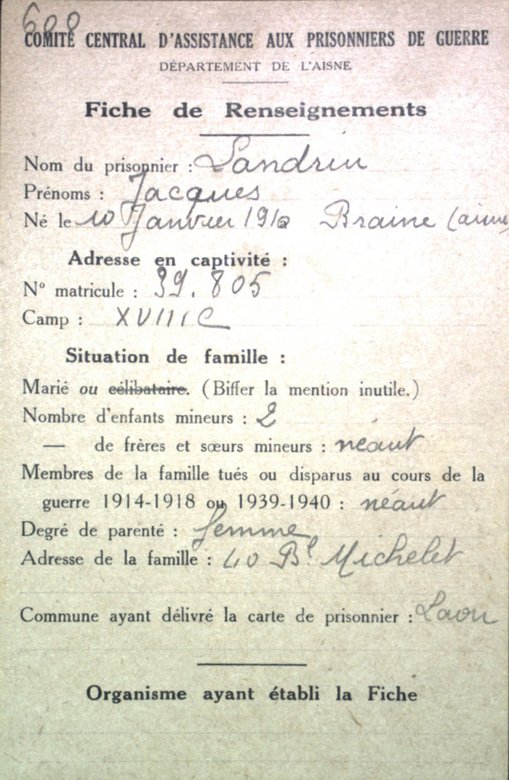 600
COMITÉ CENTRAL D'ASSISTANCE AUX PRISONNIERS DE GUERRE
DÉPARTEMENT DE L'AISNE
Fiche de Renseignements
Nom du prisonnier : Landrin
Prénoms : Jacques
Né le 10 Janvier 1912 Braine (aisne)
Adresse en captivité :
N° matricule : 39.805
Camp : XVIII C
Situation de famille :
Marié ou célibataire. (Biffer la mention inutile.)
Nombre d'enfants mineurs : 2
— de frères et sœurs mineurs : néant
Membres de la famille tués ou disparus au cours de la
guerre 1914-1918 ou 1939-1940 : néant
Degré de parenté : femme
Adresse de la famille : 40 Bd Michelet
Commune ayant délivré la carte de prisonnier : Laon
Organisme ayant établi la Fiche